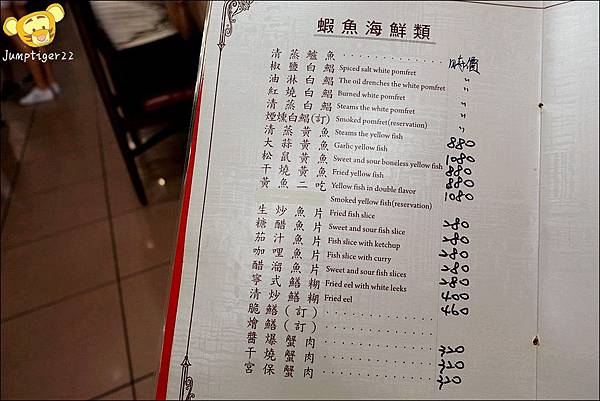 Jumptiger22
蝦魚海鮮類
清蒸鱸魚 時價
椒鹽白鯧 Spiced salt white pomfret 〃
油淋白鯧 The oil drenches the white pomfret 〃
紅燒白鯧 Burned white pomfret 〃
清蒸白鯧 Steams the white pomfret 〃
煙燻白鯧(訂) Smoked pomfret(reservation)
清蒸黃魚 Steams the yellow fish 880
大蒜黃魚 Garlic yellow fish 880
松鼠黃魚 Sweet and sour boneless yellow fish 1080
干燒黃魚 Fried yellow fish 880
黃魚二吃 Yellow fish in double flavor 1080
Smoked yellow fish(reservation)
生炒魚片 Fried fish slice
糖醋魚片 Sweet and sour fish slice
茄汁魚片 Fish slice with ketchup
咖哩魚片 Fish slice with curry
醋溜魚片 Sweet and sour fish slices
寧式鱔糊 Fried eel with white leeks 400
清炒鱔糊 Fried eel 460
脆鱔(訂)
燴鱔(訂)
醬爆蟹肉 320
干燒蟹肉 320
宮保蟹肉 320